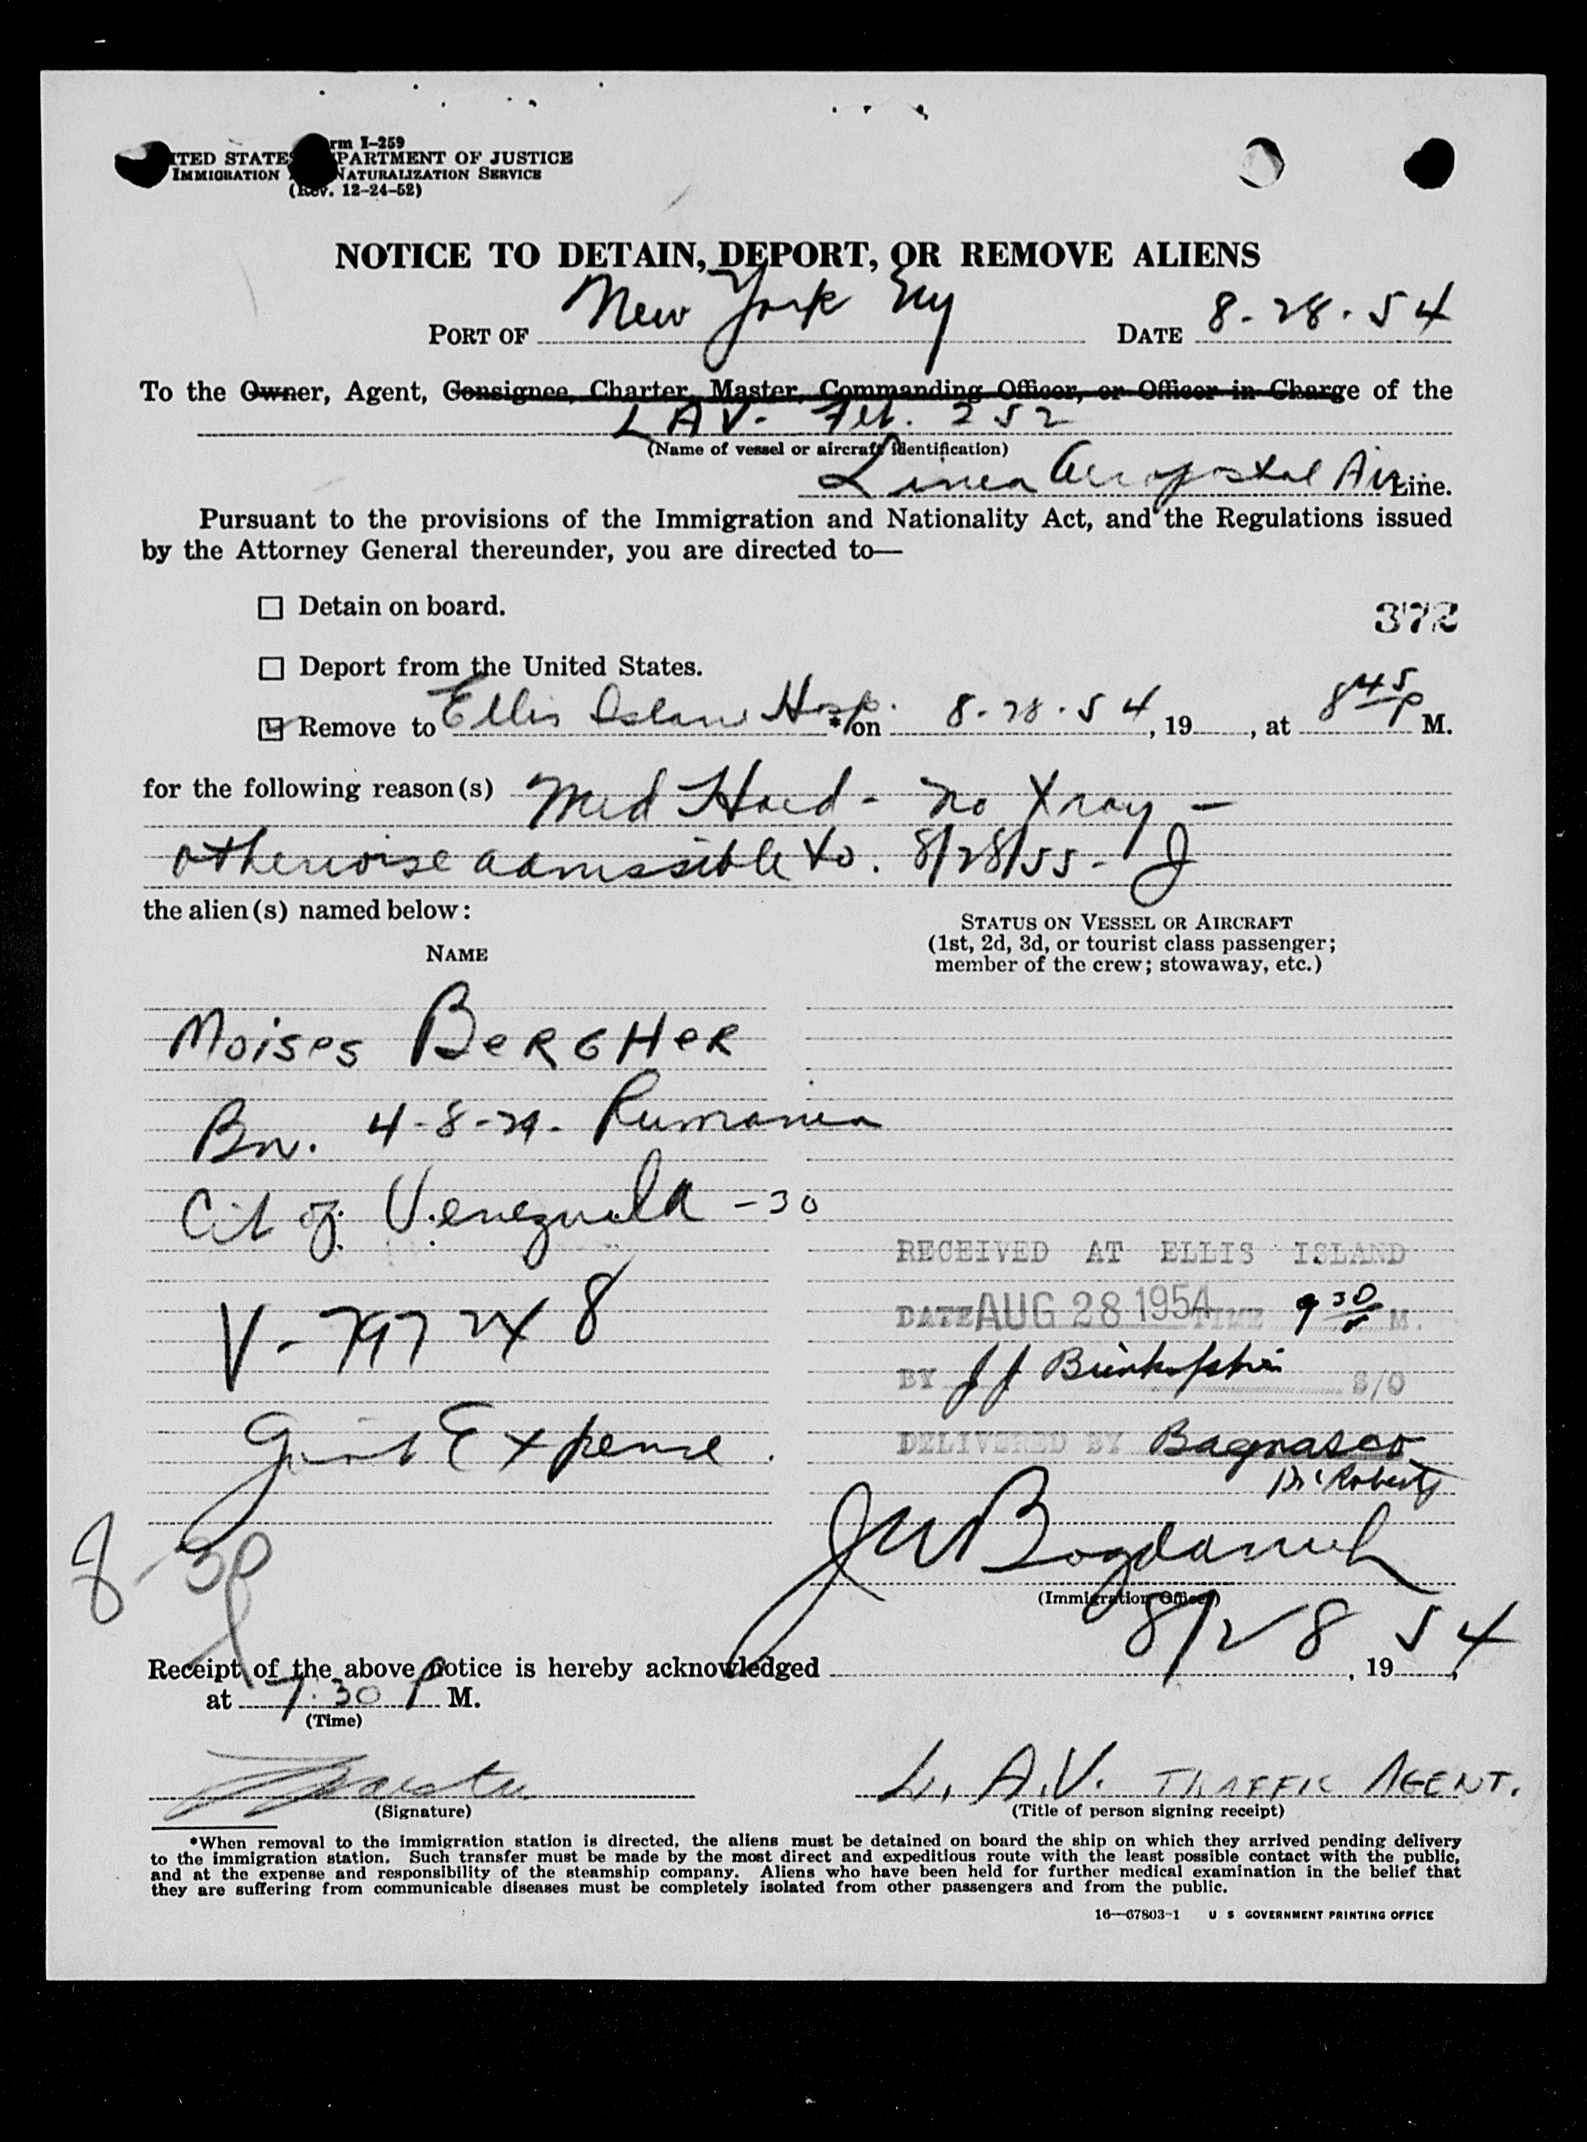 rm I-259
ITED STATES PARTMENT OF JUSTICE
IMMIGRATION NATURALIZATION SERVICE
(Rev. 12-24-52)
NOTICE TO DETAIN, DEPORT, OR REMOVE ALIENS
PORT OF New York NY DATE 8-28-54
To the Owner, Agent, Consignee, Charter, Master, Commanding Officer, or Officer in Charge of the
LAV- Flt. 252
(Name of vessel or aircraft identification)
Linea Aeropostal Air Line.
Pursuant to the provisions of the Immigration and Nationality Act, and the Regulations issued
by the Attorney General thereunder, you are directed to—
Detain on board.
372
Deport from the United States.
Remove to Ellis Island Hosp. * on 8-28-54, 19, at 8 45 P M.
for the following reason(s) Med Hold - no Xray -
otherwise admissible to. 8/28/55-
the alien(s) named below:
STATUS ON VESSEL OR AIRCRAFT
(1st, 2d, 3d, or tourist class passenger;
member of the crew; stowaway, etc.)
NAME
Moises BERGHER
Bn. 4-8-29- Rumania
Cit of Venezuela -30
RECEIVED AT ELLIS ISLAND
DATE AUG 28 1954 TIME 9 30 P M.
V-797248
BY J J S/O
Govt Expense.
DELIVERED BY Bagnasco
Roberts
J W Bogdanich
8-30
(Immigration Officer)
Receipt of the above notice is hereby acknowledged 8/28, 19 54
at 7:30 P M.
(Time)
L. A.V. TRAFFIC AGENT.
(Signature)
(Title of person signing receipt)
*When removal to the immigration station is directed, the aliens must be detained on board the ship on which they arrived pending delivery
to the immigration station. Such transfer must be made by the most direct and expeditious route with the least possible contact with the public,
and at the expense and responsibility of the steamship company. Aliens who have been held for further medical examination in the belief that
they are suffering from communicable diseases must be completely isolated from other passengers and from the public.
16—67803-1 U S GOVERNMENT PRINTING OFFICE